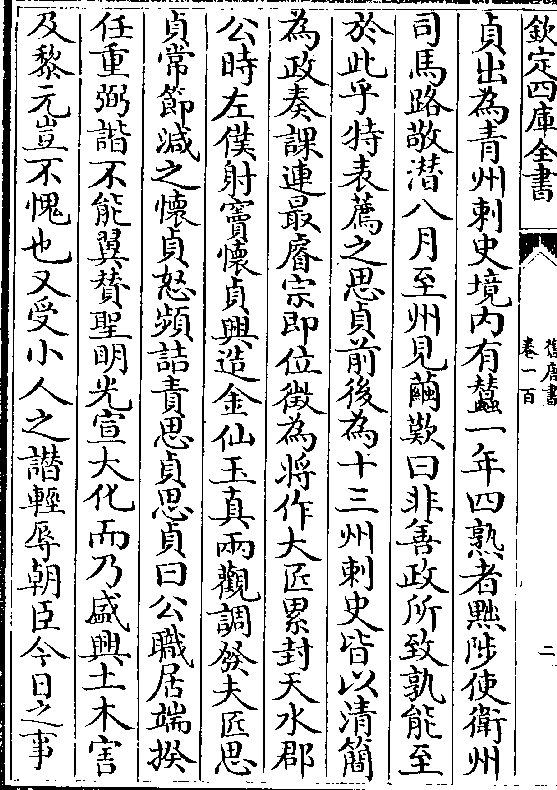 欽定四庫全書
舊唐書
卷一百
二
貞出為青州刺史境內有蠶一年四熟者黜陟使衛州
司馬路敬潜八月至州見繭歎曰非善政所致孰能至
於此乎特表薦之思貞前後為十三州刺史皆以清簡
為政奏課連最睿宗即位徵為將作大匠累封天水郡
公時左僕射竇懷貞興造金仙玉真兩觀調發夫匠思
貞常節減之懷貞怒頻詰責思貞思貞曰公職居端揆
任重弼諧不能翼賛聖明光宣大化而乃盛興土木害
及黎元豈不愧也又受小人之譖輕辱朝臣今日之事